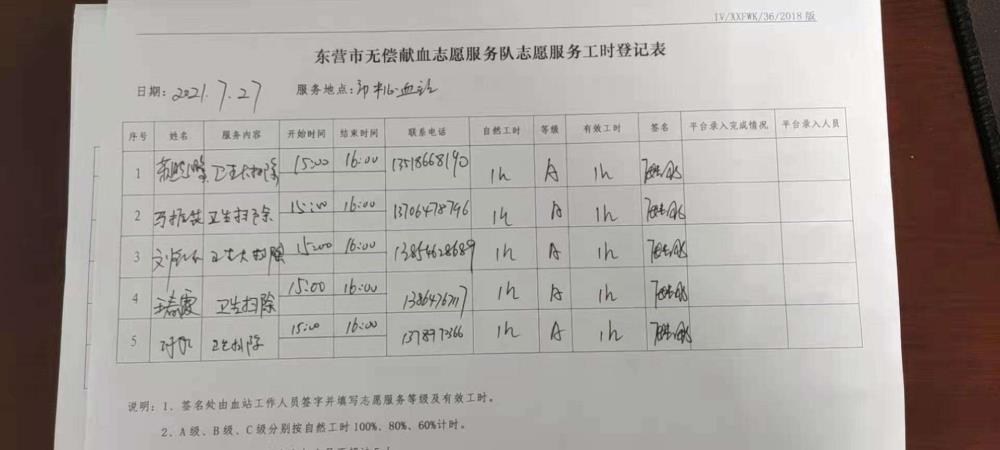 IV/XXFWK/36/2018 版
东营市无偿献血志愿服务队志愿服务工时登记表
日期: 2021.7.27 服务地点:
序号 姓名 服务内容 开始时间 结束时间 联系电话 自然工时 等级 有效工时 签名 平台录入完成情况 平台录入人员
1 卫生大扫除 15:00 16:00 13518668190 1h A 1h
2 卫生扫除 15:00 16:00 13706478796 1h A 1h
3 卫生大扫除 15:00 16:00 13854628689 1h A 1h
4 王春霞 卫生扫除 15:00 16:00 1h A 1h
5 卫生扫除 15:00 16:00 1h A 1h
说明: 1、签名处由血站工作人员签字并填写志愿服务等级及有效工时。
2、A级、B级、C级分别按自然工时100%、80%、60%计时。